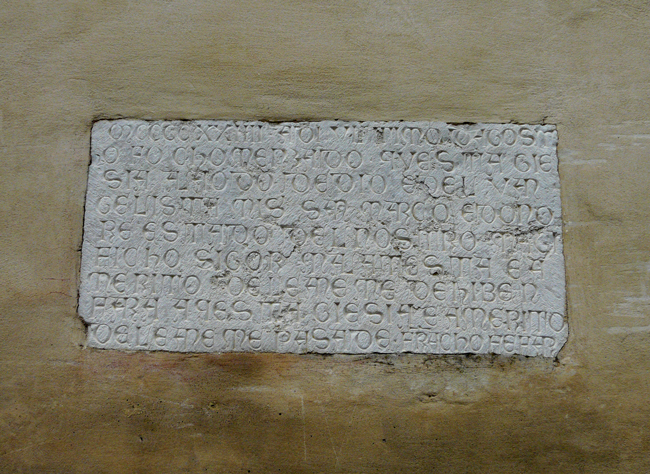 MCCCCXXXIII ADI VLTIMO DAGOSTO
FO CHOMENZADO QVESTA GIE
SIA ALAODO DEDIO EDEL VAN
GELISTA MIS SAN MARCO EDONO
RE ESTADO DEL NOSTRO MAGI
FICHO SIGOR MALATESTA E A
MERITO DELE ANEME DE
FARA AQESTA GIESIA E AMERITO
DELE ANEME PASADE